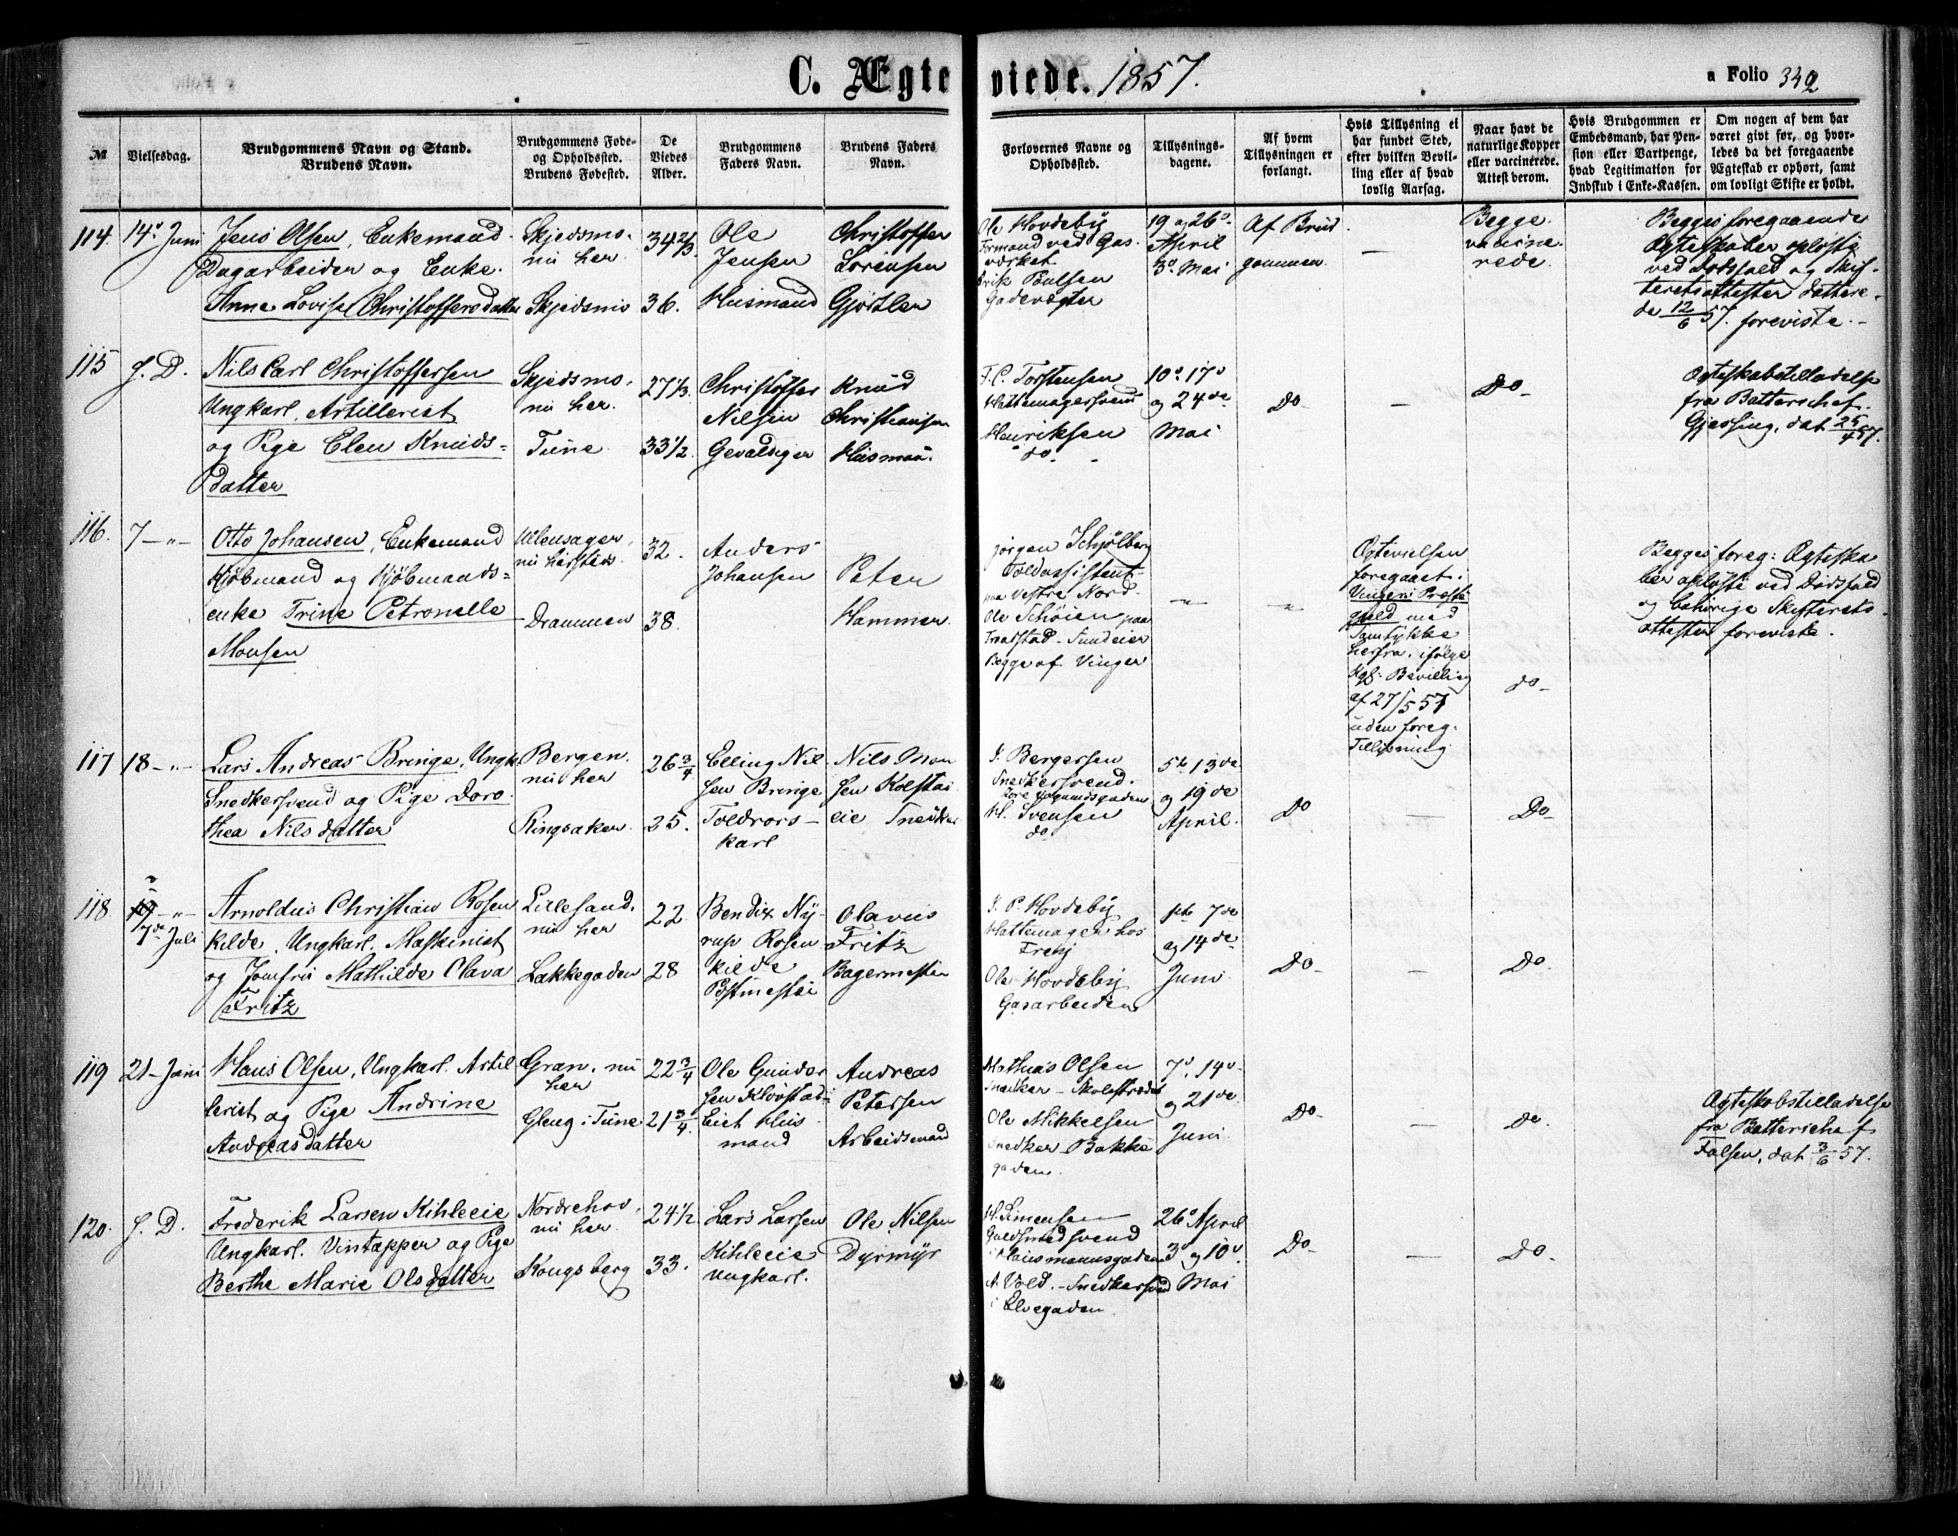 C. Ægteviede. 1857.
a Folio 342
№
Vielsesdag.
Brudgommens Navn og Stand.
Brudens Navn.
Brudgommens Føde-
og Opholdssted.
Brudens Fødested.
De
Viedes
Alder.
Brudgommens
Faders Navn.
Brudens Faders
Navn.
Forlovernes Navne og
Opholdssted.
Tillysnings-
dagene.
Af hvem
Tillysningen er
forlangt.
Hvis Tillysning ei
har fundet Sted,
efter hvilken Bevil-
ling eller af hvad
lovlig Aarsag.
Naar havt de
naturlige Kopper
eller vaccinerede.
Attest derom.
Hvis Brudgommen er
Embedsmand, har Pen-
sion eller Vartpenge,
hvad Legitimation for
Indskud i Enke-Kassen.
Om nogen af dem har
været givt før, og hvor-
ledes da det foregaaende
Ægteskab er ophørt, samt
om lovligt Skifte er holdt.
114. 14° Juni
Jens Olsen, Enkemand
Dagarbeider og Enke
Anne Lovise Christoffersdatter
Skjedsmo-
nu her.
Skjedsmo
34 2/3
36.
Ole
Jensen
Husmand
Christoffer
Lorensen
Gjørtler
Ole Hovdeby
Formand ved Gas-
værket
Erik Poulsen
Gadevægter
19 og 26°
April
3° Mai
Af Brud
gommen.
—
Begge
vaccine
rede.
Begges foregaaende
Ægteskaber opløste
ved Dødsfald og Skif-
teretsattester datere-
de 12/6 57. foreviste.—
115 f. D.
Nils Carl Christoffersen
Ungkarl, Artillerist
og Pige Elen Knuds-
datter
Skjedsmo.
nu her.
Tune
27 1/3
33 1/2
Christoffer
Nilsen
Gevaldiger
Knud
Christiansen
Husmañ.
F. C. Torstensen
Hattemagersvend
Henriksen
do
10° 17°
og 24de
Mai
Do
—
Do-
Ægteskabstilladelse
fra Batterichef.
Gjessing, dat. 25/4 57.
116. 7 - " -
Otto Johansen, Enkemand
Kjøbmand og Kjøbmands-
enke Trine Petronelle
Monsen
Ullensager,
nu hersteds.
Drammen
32.
38.
Anders
Johansen
Peter
Hammer
Jørgen Schjølberg
Toldassistent
paa Vestre Nord.
Ole Schøien paa
Begge af Vinger
- " -
- " -
Ægtevielsen
foregaaet i
Vingers Præste
gjeld med
Samtykke
herfra, ifølge
Kgl: Bevilling
af 27/5 57
uden foreg.
Tillysning
do-
Begges foreg: Ægteska
ber opløste ved Dødsfald
og behørige Skifterets-
attester foreviste.
117 18 - " -
Lars Andreas Bringe, Ungk
Snedkersvend og Pige Doro
thea Nilsdatter
Bergen.
nu her
Ringsaker.
26 3/4
25.
Elling Nil
sen Bringe
Toldrors-
karl
Nils Mon
sen Kolstad
eie Snedker
J. Bergersen
Snedkersvend.
H. Svensen
do
5te 13de
og 19de
April.
Do
—
Do-
118 19 - " -
7de Juli
Arnoldus Christian Rosen
kilde, Ungkarl, Maskinist
og Jomfru Mathilde Olava
Fritz
Lillesand.
nu her
Lakkegaden
22
28
Bendix Ny-
rup Rosen
kilde
Postmester
Olavus
Fritz
Bagermester
J. P. Hovdeby
Hattemager hos
Ole Hovdeby
Gasarbeider
7de
og 14de
Juni
Do-
—
Do.
119 21 - Juni
Hans Olsen, Ungkarl. Artil
lerist og Pige Andrine
Andreasdatter
Gran, nu
her
Gleng i Tune
22 3/4
21 3/4
Ole Gunder
sen Klovstad-
eiet Hus
mand
Andreas
Petersen
Arbeidsmand
Mathias Olsen
Snedker - Skolestrædet
Ole Mikkelsen
Snedker Bakke
gaden.
7°, 14°
og 21de
Juni
Do-
—
do.
Ægteskabstilladelse
fra Batterichef
Falsen, dat 3/6 57.
120. f. D.
Frederik Larsen Kihleeie
Ungkarl. Vintapper og Pige
Berthe Marie Olsdatter
Nordrehov,
nu her.
Kongsberg
24 1/2
33.
Lars Larsen
Kihleeie
Ungkarl.
Ole Nilsen
Dyrmyr
H. Simensen
Guldsmedsvend
i Hausmannsgaden
A. Vold. - Snedkersvend
i Elvegaden.
26° April
3° og 10°
Mai
Do-
—
Do-